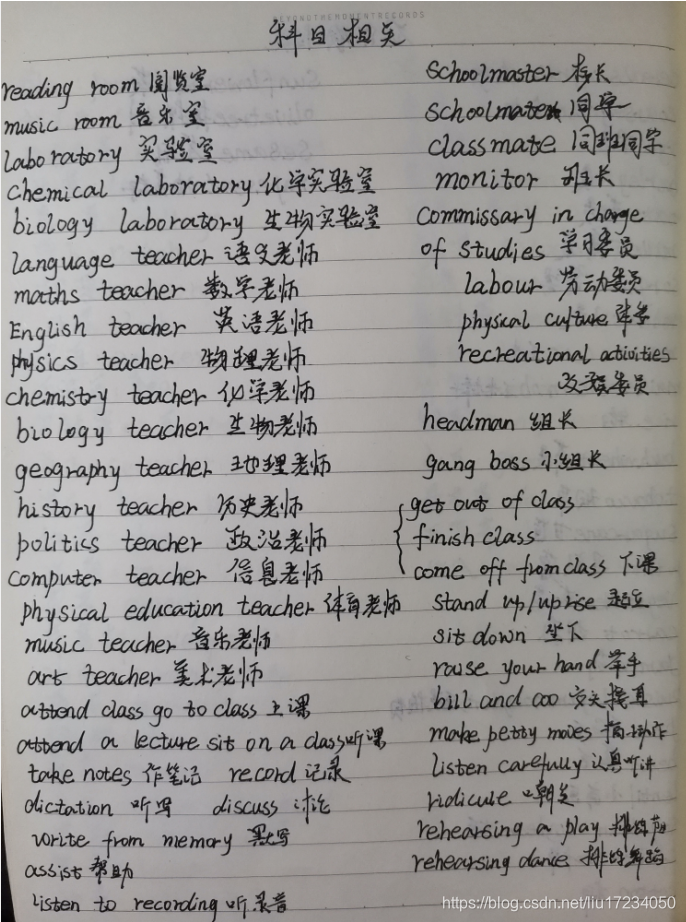 BEYONDTHEMOMENTRECORDS
科目相关
reading room 阅览室
music room 音乐室
laboratory 实验室
chemical laboratory 化学实验室
biology laboratory 生物实验室
language teacher 语文老师
maths teacher 数学老师
English teacher 英语老师
physics teacher 物理老师
chemistry teacher 化学老师
biology teacher 生物老师
geography teacher 地理老师
history teacher 历史老师
politics teacher 政治老师
computer teacher 信息老师
physical education teacher 体育老师
music teacher 音乐老师
art teacher 美术老师
attend class go to class 上课
attend a lecture sit on a class 听课
take notes 作笔记 record 记录
dictation 听写 discuss 讨论
write from memory 默写
assist 帮助
listen to recording 听录音
schoolmaster 校长
schoolmate 同学
classmate 同班同学
monitor 班长
commissary in charge
of studies 学习委员
labour 劳动委员
physical culture 体委
recreational activities
文娱委员
headman 组长
gang boss 小组长
get out of class
finish class
come off from class 下课
stand up/uprise 起立
sit down 坐下
raise your hand 举手
bill and coo 交头接耳
make petty moves 搞小动作
listen carefully 认真听讲
ridicule 嘲笑
rehearsing a play 排练
rehearsing dance 排练舞蹈
https://blog.csdn.net/liu17234050